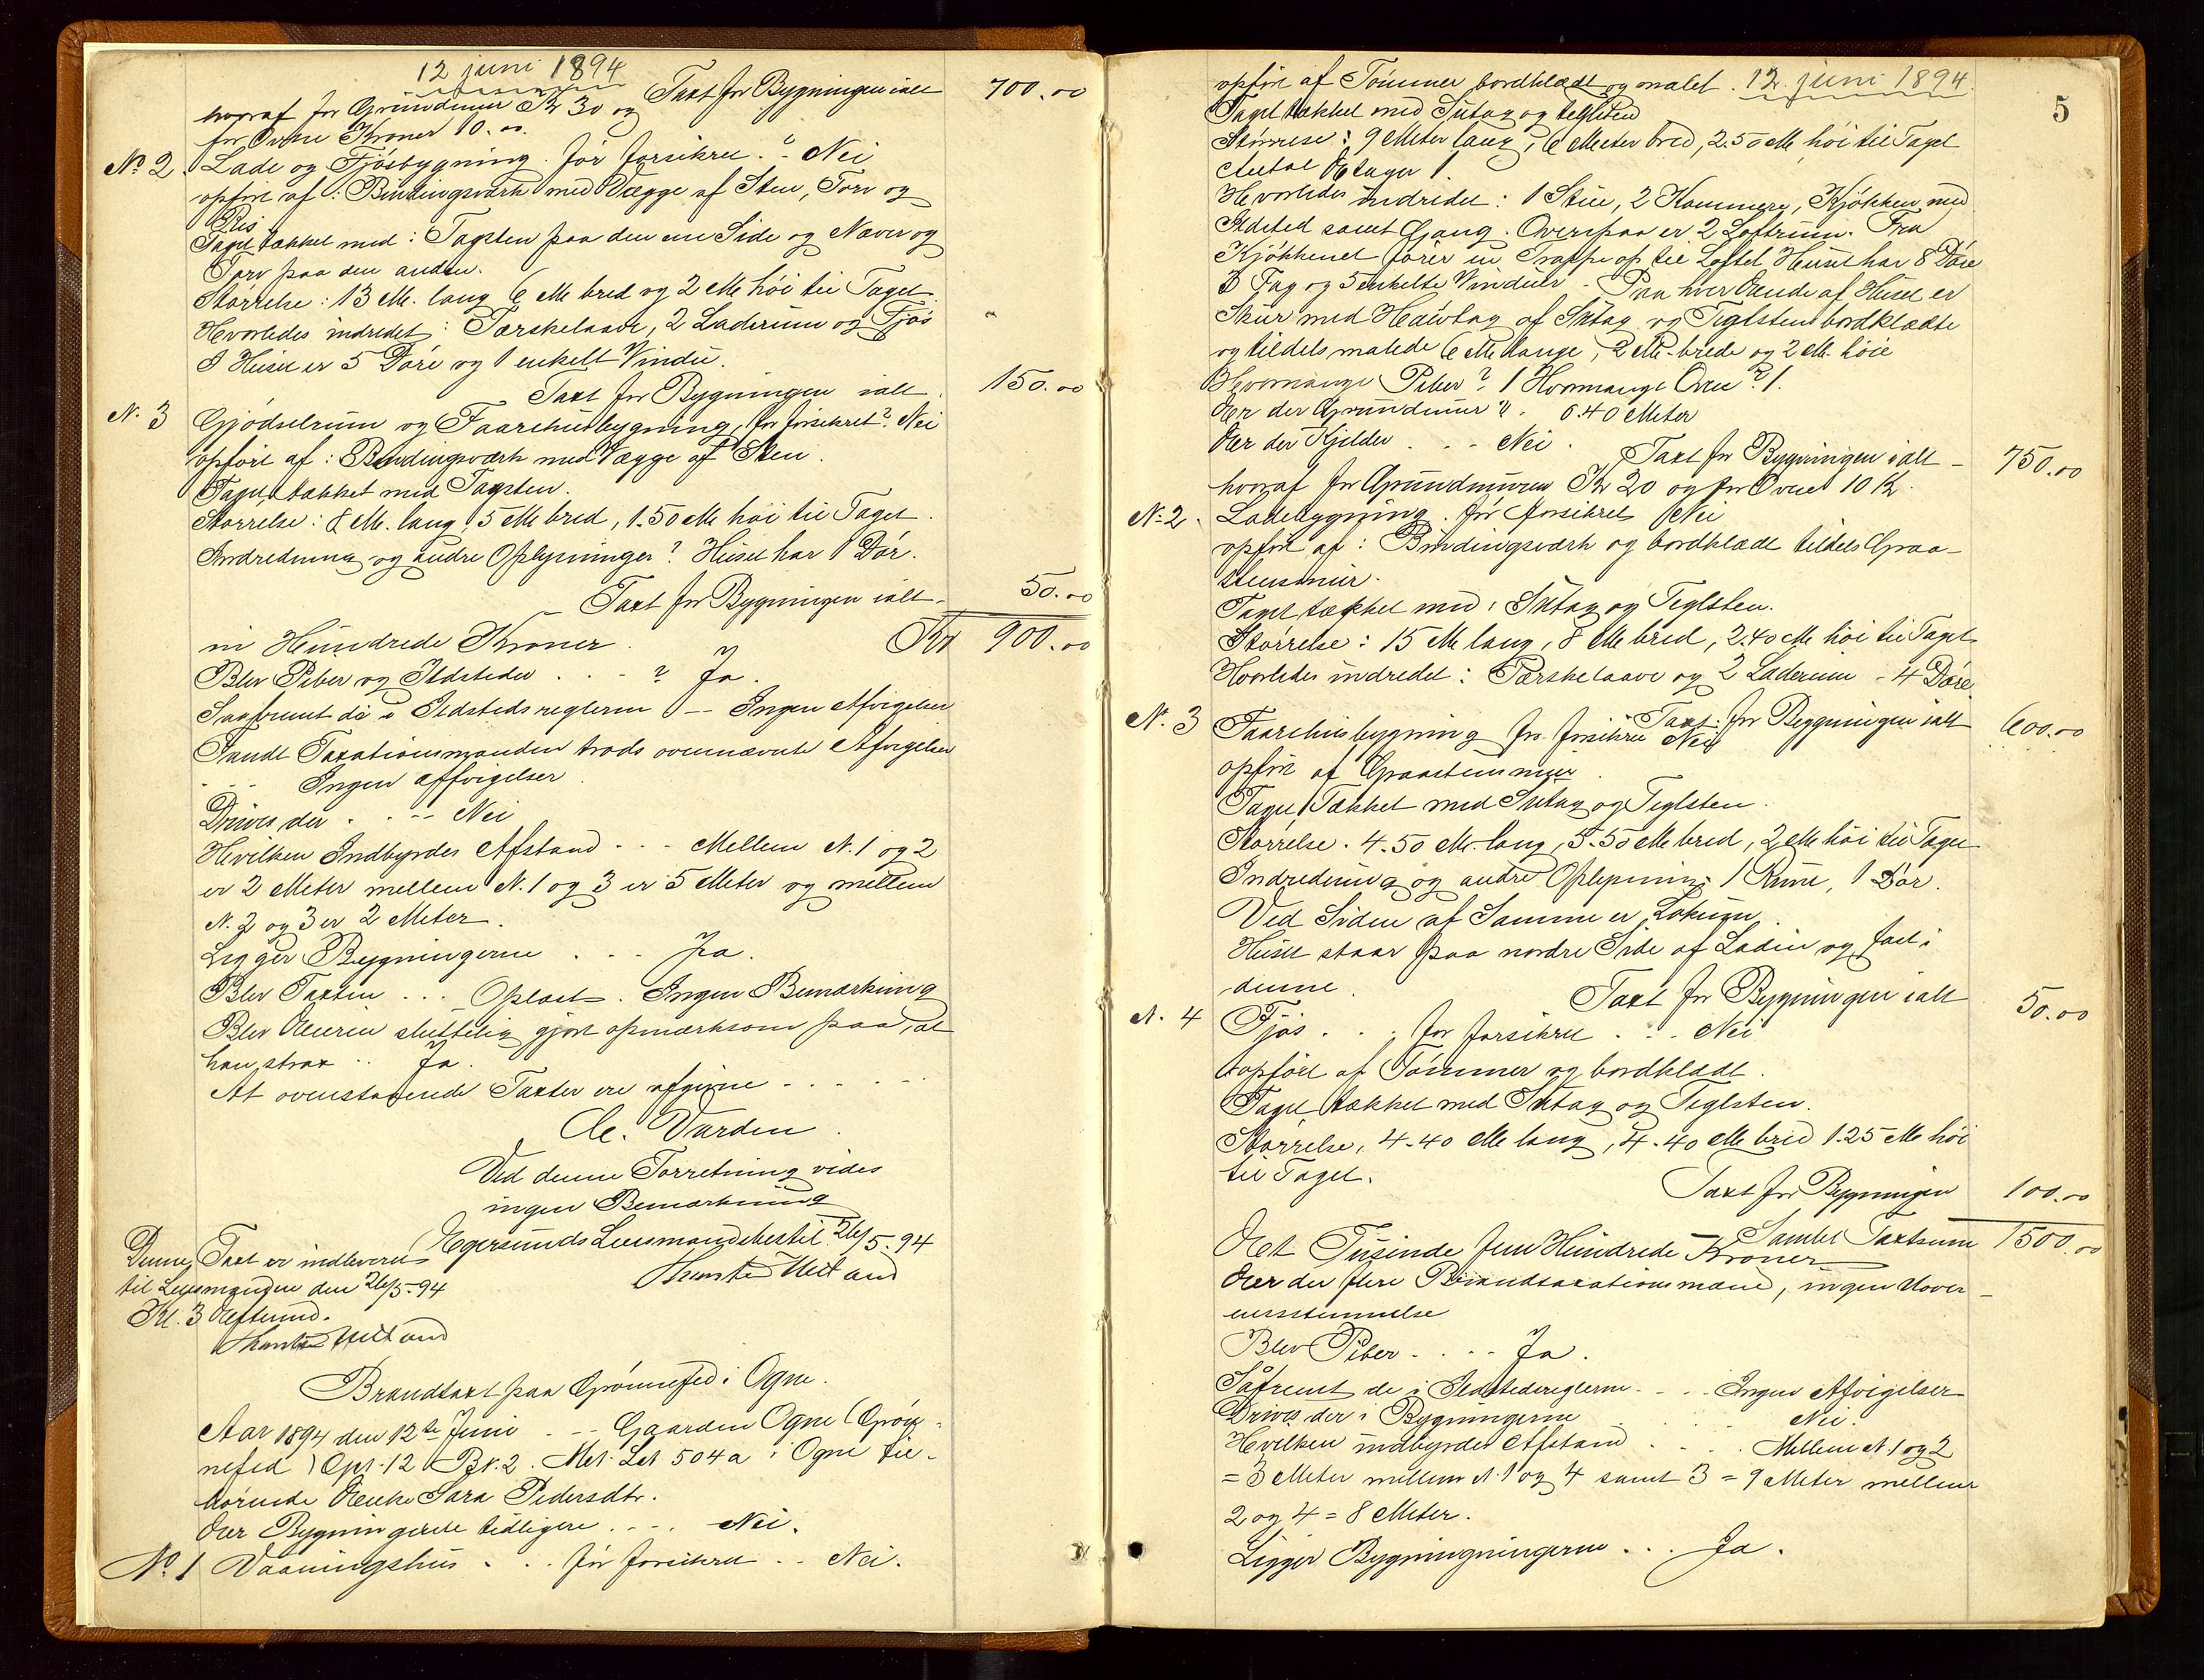 12 juni 1894
hvoraf for Grundmur Kr 30 og Taxt for Bygningen ialt 700.00
for Ovne Kroner 10.00
No 2. Lade og Fjøsbygning. før forsikret.? - Nei
opført af: Bindingsværk med Vægge af Sten, Torv og
Ris
Taget tækket med: Tagsten paa den ene Side og Næver og
Torv paa den anden.
Størrelse: 13 M. lang 6 M bred og 2 M høi til Taget.
Hvorledes indredet: Tærskelaave, 2 Laderum og Fjøs
I Huset er 5 Døre og 1 enkelt Vindu.
Taxt for Bygningen ialt. 150.00
N. 3 Gjødselrum og Faarehusbygning, før forsikret? Nei
opført af: Bindingsværk med Vægge af Sten.
Taget tækket med Tagsten.
Størrelse: 8 M. lang, 5 M bred, 1.50 M høi til Taget.
Indredning og andre Oplysninger? Huset har 1 Dør.
Taxt for Bygningen ialt - 50.00
ni Hundrede Kroner. Kr 900.00
Blev Piber og Ildsteder . . - ? Ja.
Saafremt de i Ildstedsreglerne - - Ingen Afvigelser
Fandt Taxationsmanden trods ovennævnte Afvigelser
- - Ingen affvigelser.
Drives der . . -- Nei
Hvilken Indbyrdes Afstand - - - Mellem N. 1 og 2
er 2 Meter mellem N. 1 og 3 er 5 Meter og mellem
N. 2 og 3 er 2 Meter.
Ligger Bygningerne . . . Ja.
Blev Taxten . . . Oplæst. Ingen Bemærkning
Blev Eieren sluttelig gjort opmærksom paa, at
han strax .. Ja.
At ovenstaaende Taxter ere afgivne - - - - - -
C. Varden.
Ved denne Forretning vides
ingen Bemærkning
Egersunds Lensmandsbestil. 26/5. 94
Denne Taxt er indleveret
til Lensmanden den 26/5-94
Kl. 3 Efterm.
Brandtaxt paa Grønnefed i Ogne.
Aar 1894 den 12te Juni . - - Gaarden Ogne (Grøn-
nefed) Gnr. 12 Br. 2. Mat. Let 504a i Ogne til-
hørende Enke Sara Pedersdtr.
Er Bygningerne tidligere . - - . Nei.
No 1 Vaaningshus . . . før forsikret . . Nei.
5
opført af Tømmer bordklædt og malet. 12. juni 1894.
Taget tækket med Sutag og teglsten
Størrelse: 9 Meter lang, 6 Meter bred, 2.50 M, høi til Taget
Antal Etager 1.
Hvorledes indredet: 1 Stue, 2 Kammere, Kjøkken med
Ildsted samt Gang. Ovenpaa er 2 Loftrum. Fra
Kjøkkenet fører en Trappe op til Loftet Huset har 8 Døre
3 Fag og 5 enkelte Vinduer - Paa hver Ende af Huset er
Skur med Halvtag af Sutag og Teglsten bordklædte
og tildels malede 6 M lange, 2 M. brede og 2 M. høie
Hvormange Piber? 1 Hvormange Ovne? 1.
Er der Grundmur ". 0.40 Meter
Er der Kjelder . - - Nei. Taxt for Bygningen ialt - 750.00
hvoraf for Grundmuren Kr 20 og for Ovnen 10 Kr.
No 2. Ladebygning. før forsikret Nei
opført af: Bindingsværk og bordklædt tildels Graa-
stensmur.
Taget tækket med: Sutag og Teglsten.
Størrelse: 15 M lang, 8 M bred, 2.40 M høi til Taget
Hvorledes indredet: Tærskelaave og 2 Laderum - 4 Døre
Taxt for Bygningen ialt 600.00
N. 3 Faarehusbygning før forsikret Nei
opført af Graastensmur.
Taget Tækket med Sutag og Teglsten.
Størrelse. 4.50 M. lang, 3.50 M bred, 2 M høi til Taget
Indredning og andre Oplysning: 1 Rum, 1 Dør.
Ved Siden af Samme er Lokum.
Huset staar paa nordre Side af Laden og fast i
denne. Taxt for Bygningen ialt 50.00
N. 4 Fjøs . . . før forsikret . - - Nei
opført af Tømmer og bordklædt.
Taget tækket med Sutag og Teglsten.
Størrelse, 4.40 M lang, 4.40 M bred 1.25 M høi
til Taget.
Taxt for Bygningen 100.00
Samlet Taxtsum 1500.00
Et Tusinde fem Hundrede Kroner
Er der flere Brandtaxationsmænd, ingen Uover-
ensstemmelse
Blev Piber - . - - Ja.
Såfremt de i Ildstedsreglerne. - . - Ingen Afvigelser
Drives der i Bygningerne . . . Nei.
Hvilken indbyrdes Afstand . . . . Mellem N. 1 og 2
= 3 Meter mellem N. 1 og 4 samt 3 = 9 Meter mellem
2 og 4 = 8 Meter.
Ligger Bygningningerne . . . Ja.